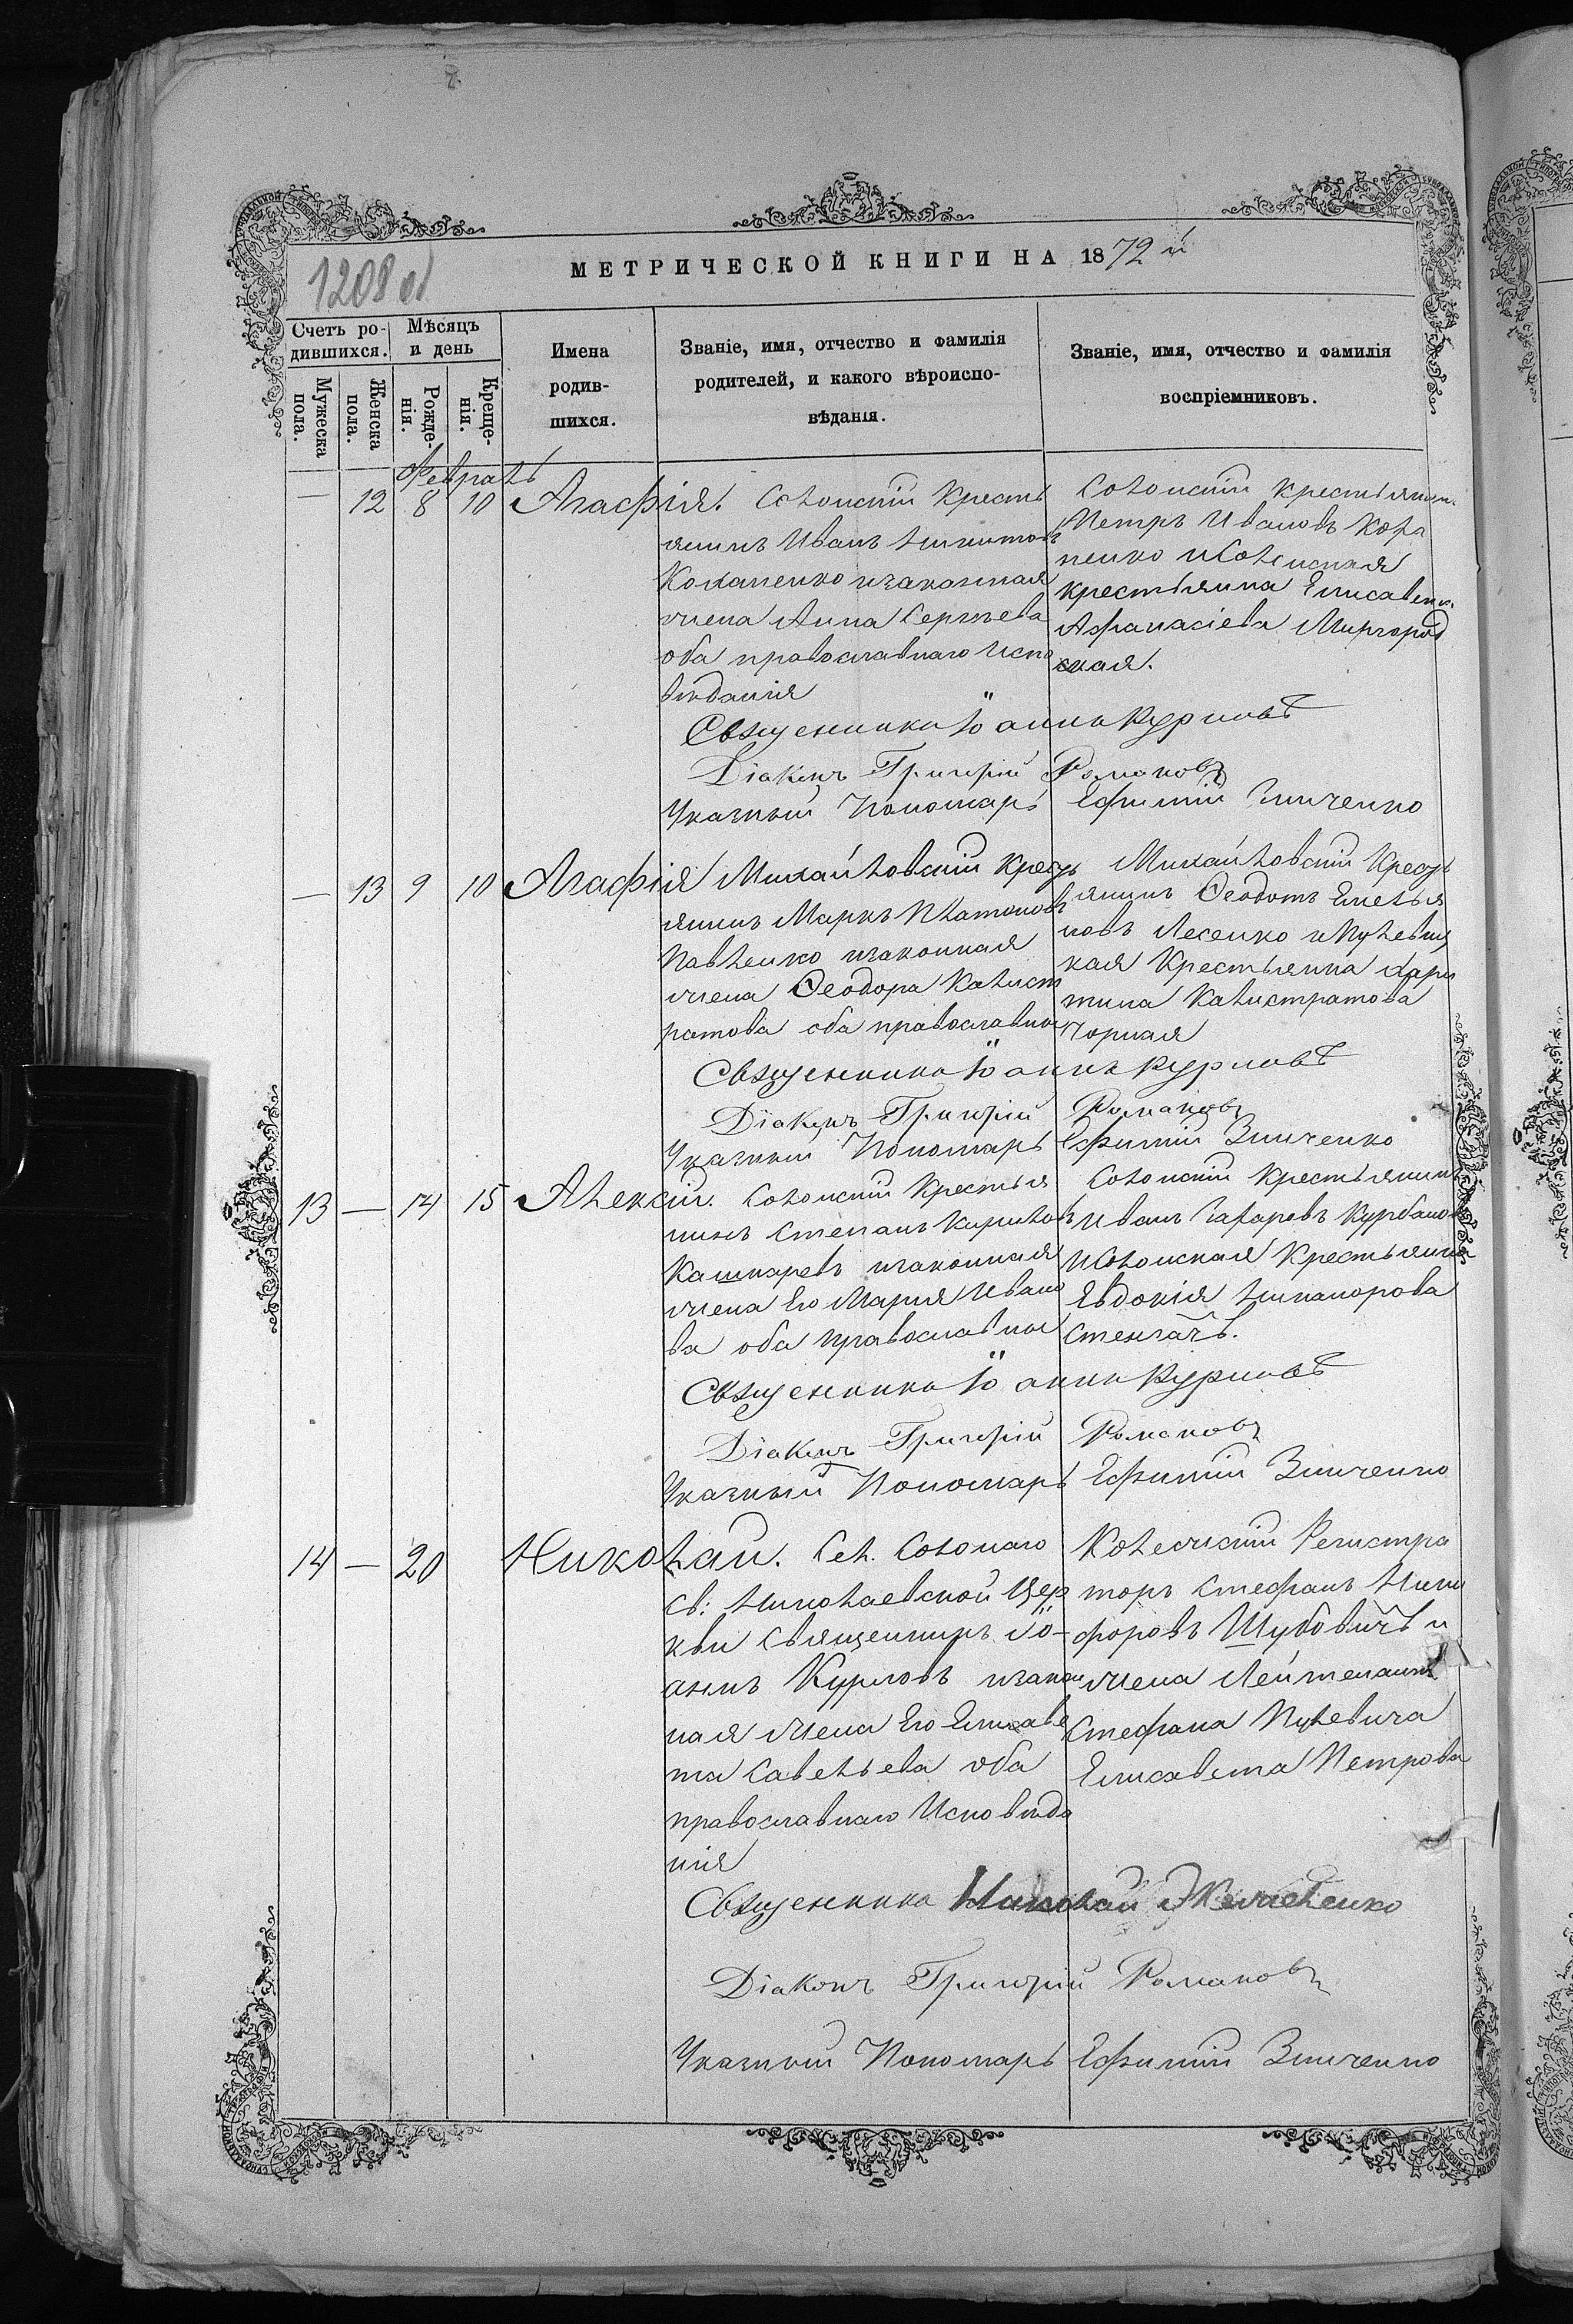 1208 об
МЕТРИЧЕСКОЙ КНИГИ НА 1872 й
Счетъ ро-
дившихся.
Мѣсяцъ
и день
Мужеска
пола.
Женска
пола.
Рожде-
нія.
Креще-
нія.
Имена
родив-
шихся.
Званіе, имя, отчество и фамилія
родителей, и какого вѣроиспо-
вѣданія.
Званіе, имя, отчество и фамилія
воспріемниковъ.
Февраль
— 12 8 10 Агафія.
Солонскій Кресть
янинъ Иванъ Никитовъ
изаконная
жена Анна Сергѣева
оба православнаго испо
вѣданія
Солонскій крестьянин.
Петръ Ивановъ Кора
ненко и Солонская
крестьянка
Афанасіева Миргород
ская.
Священникъ Іоаннъ Курловъ
Діаконъ Григорій Романовъ
Указный Пономарь Ефимій Зинченко
— 13 9 10 Агафія
Михайловскій Кресть
янинъ Маркъ Платоновъ
Павленко изаконная
жена Ѳеодора Калист
ратова оба православные
Михайловскій Кресть
янинъ Ѳеодотъ Емелья
новъ Лесенко
кая Крестьянка Хари
тина Калистратова
Чорная
Священникъ Іоаннъ Курловъ
Діаконъ Григорій Романовъ
Указный Пономарь Ефимій Зинченко
13 — 14 15 Алексій.
Солонскій Крестья
нинъ Степанъ Кириловъ
Кашкаревъ изаконная
жена Его Марія Ивано
ва оба православные
Солонскій Крестьянинъ
Иванъ Захаровъ Курбанов
и Солонская Крестьянка
Евдокія Никанорова
Священникъ Іоаннъ Курловъ
Діаконъ Григорій Романовъ
Указный Пономарь Ефимій Зинченко
14 — 20 Николай.
Сел. Солонаго
Св: Николаевской Цер
кви Священникъ Іо-
аннъ Курловъ изакон
ная жена Его Елисаве
та Савельева оба
православнаго Исповѣда
нія
Колежскій Регистра
торъ Стефанъ Ники
форовъ Шубовичъ и
жена Лейтенанта
Стефана Пулевича
Елисавета Петрова
Священникъ Николай
Діаконъ Григорій Романовъ
Указный Пономарь Ефимій Зинченко